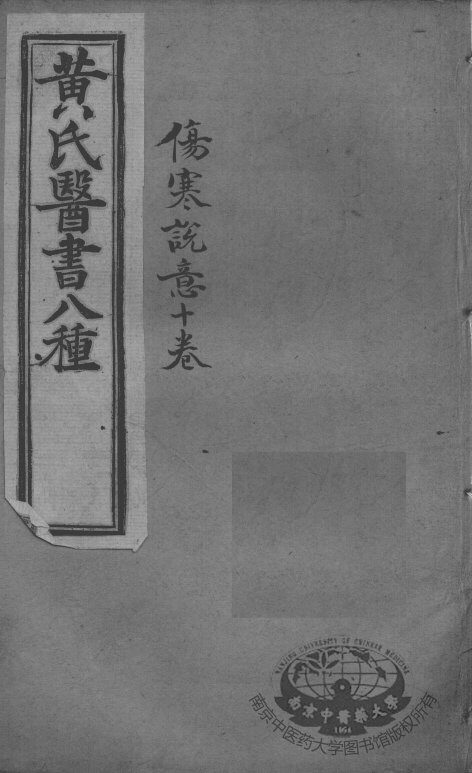 黃氏醫書八種
傷寒說意十卷
NANJING UNIVERSITY OF CHINESE MEDICINE
南京中醫藥大學
1954
南京中医药大学图书馆版权所有